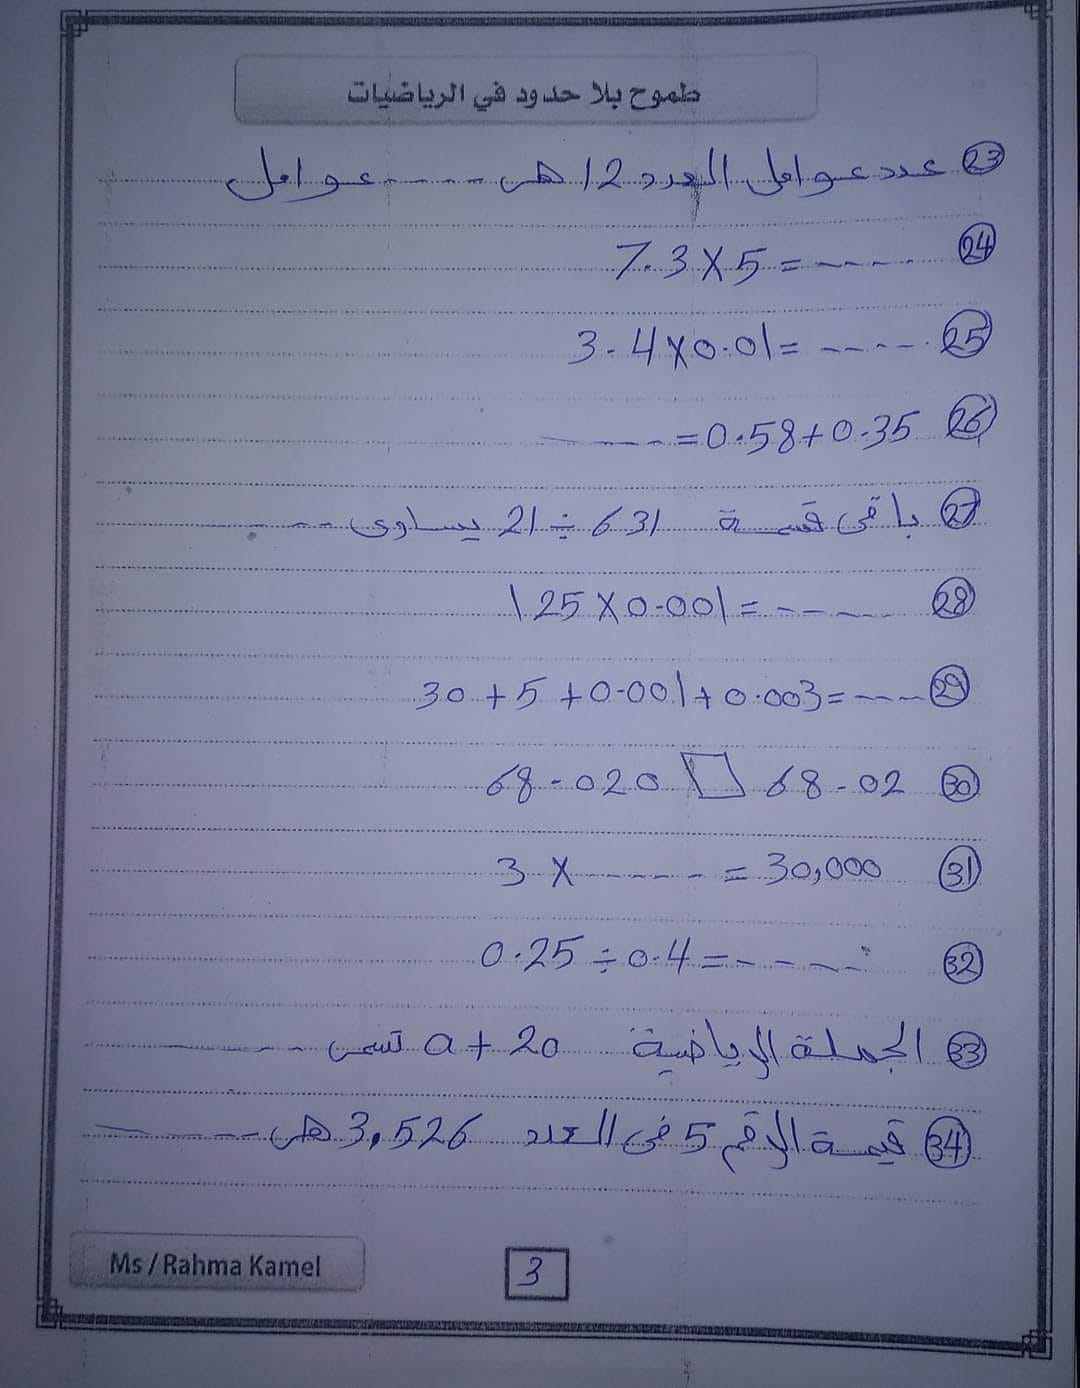 طموح بلا حدود في الرياضيات
(23) عدد عوامل العدد 12 هى ---- عوامل
(24) 7.3 X 5 = -----
(25) 3.4 X 0.01 = -----
(26) ---- = 0.58 + 0.35
(27) باقى قسمة 631 ÷ 21 يساوى ----
(28) 125 X 0.001 = -----
(29) 30 + 5 + 0.001 + 0.003 = ----
(30) 68.020 □ 68.02
(31) 3 X ----- = 30,000
(32) 0.25 ÷ 0.4 = -----
(33) الجملة الرياضية a + 20 تسمى ----
(34) قيمة الرقم 5 فى العدد 3,526 هى ----
Ms / Rahma Kamel
3